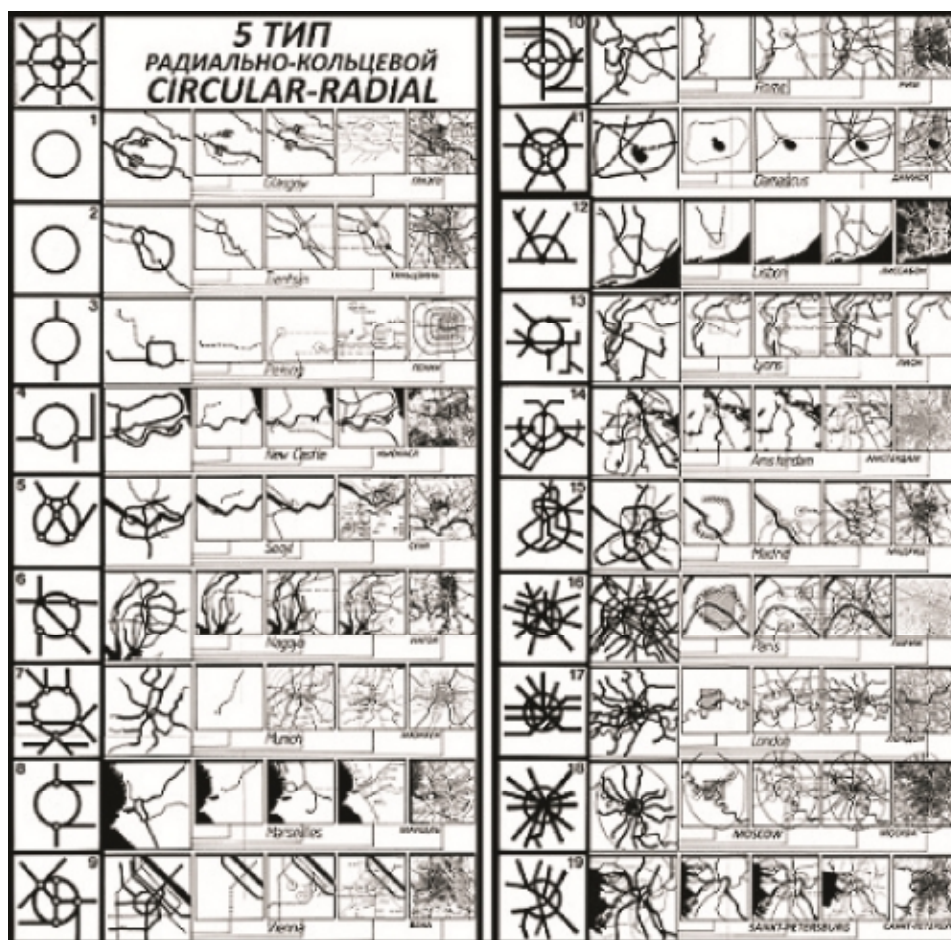 5 ТИП
РАДИАЛЬНО-КОЛЬЦЕВОЙ
CIRCULAR-RADIAL
1
Glasgow
2
Tientsin
3
Peking
ПЕКИН
4
New Castle
5
Seoul
СЕУЛ
6
Nagoya
НАГОЯ
7
Munich
МЮНХЕН
8
Marseilles
МАРСЕЛЬ
9
Vienna
ВЕНА
10
Rome
РИМ
11
Damascus
ДАМАСК
12
Lisbon
ЛИССАБОН
13
Lyons
ЛИОН
14
Amsterdam
АМСТЕРДАМ
15
Madrid
МАДРИД
16
Paris
ПАРИЖ
17
London
ЛОНДОН
18
MOSCOW
МОСКВА
19
SAINKT-PETERSBURG